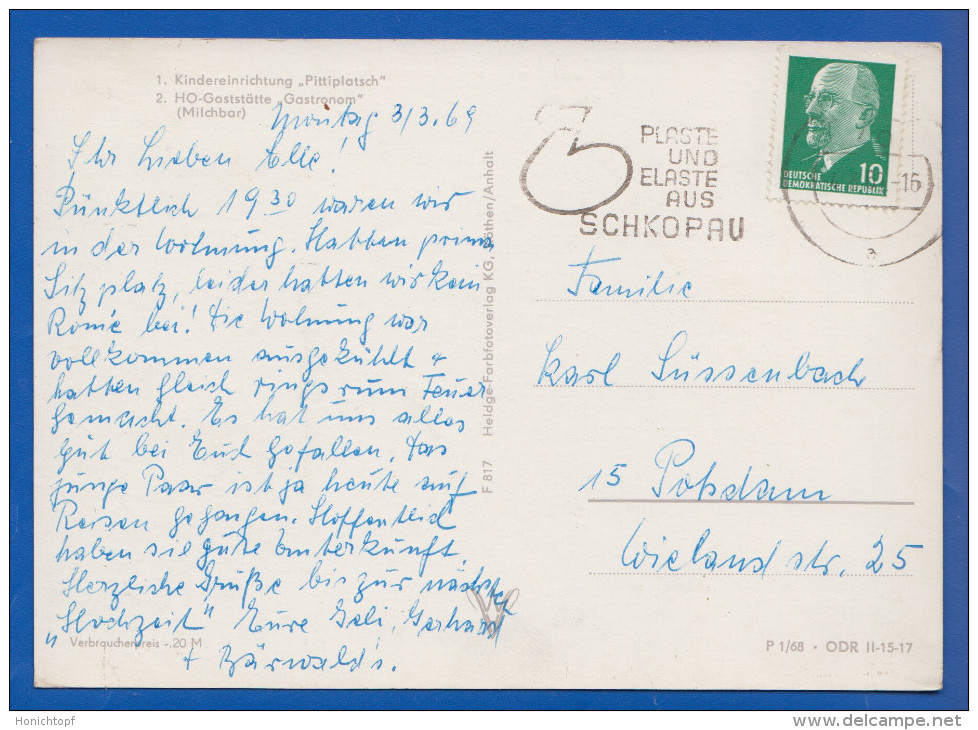 1. Kindereinrichtung „Pittiplatsch"
2. HO-Gaststätte „Gastronom"
(Milchbar)
Montag 3/3.69
Ihr Lieben Alle!
Pünktlich 19 30 waren wir
in der Wohnung. Hatten prima
Sitzplatz, leider hatten wir kein
Romé bei! Die Wohnung war
vollkommen ausgekühlt +
hatten gleich rings rum Feuer
gemacht. Es hat uns alles
gut bei Euch gefallen. Das
junge Paar ist ja heute auf
Reisen gegangen. Hoffentlich
haben sie gute Unterkunft.
Herzliche Grüße bis zur nächsten
„Hochzeit" Eure Geli, Gerhard
+ Bärwald's.
Verbraucherpreis -.20 M
F 817 Heldge-Farbfotoverlag KG, Köthen/Anhalt
PLASTE
UND
ELASTE
AUS
SCHKOPAU
10
DEUTSCHE
DEMOKRATISCHE REPUBLIK
-16
a
Familie
Karl Süssenbach
15 Potsdam
Wielandstr. 25
P 1/68 • ODR II-15-17
Honichtopf
www.delcampe.net